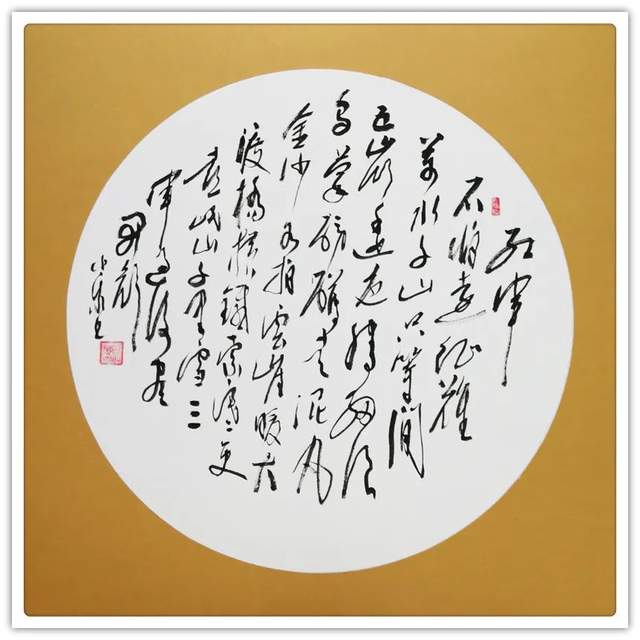 红军
不怕远征難
萬水千山只等闲
五嶺逶迤腾细浪
乌蒙磅礴走泥丸
金沙水拍雲崖暖大
渡橋横鐵索寒更
喜岷山千里雪三
军过后尽
开颜